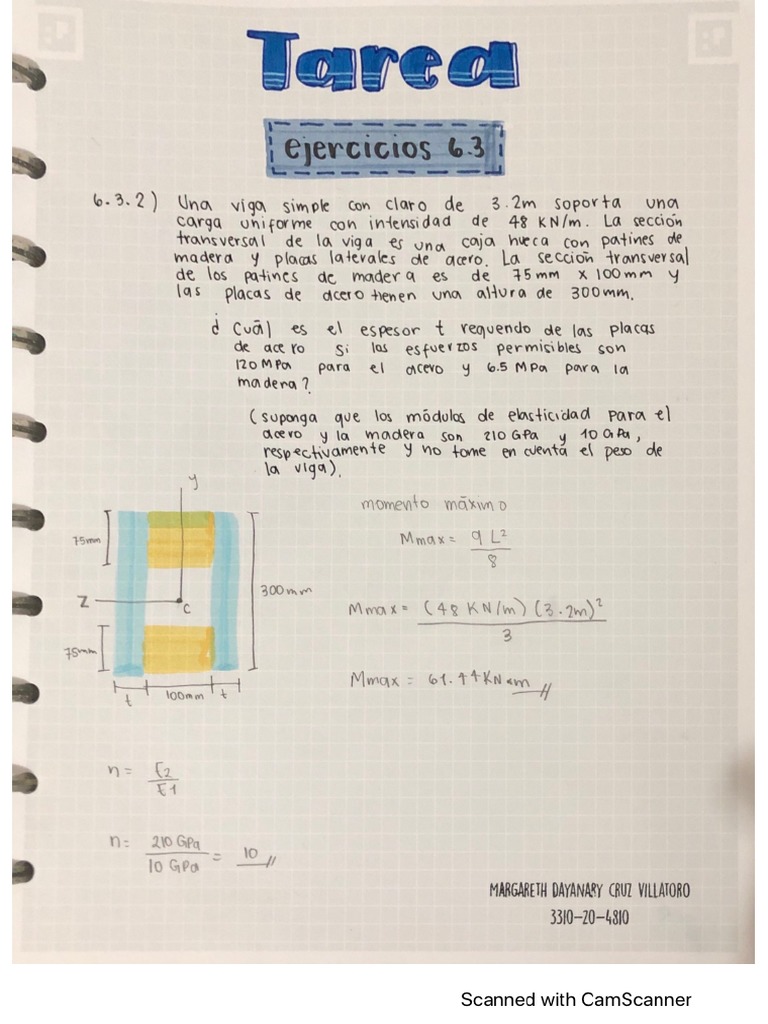 Tarea
ejercicios 6.3
6.3.2) Una viga simple con claro de 3.2m soporta una
carga uniforme con intensidad de 48 KN/m. La sección
transversal de la viga es una caja hueca con patines de
madera y placas laterales de acero. La sección transversal
de los patines de madera es de 75mm x 100mm y
las placas de acero tienen una altura de 300mm.
¿Cuál es el espesor t requerido de las placas
de acero si los esfuerzos permisibles son
120 MPa para el acero y 6.5 MPa para la
madera?
(suponga que los módulos de elasticidad para el
acero y la madera son 210 GPa y 10 GPa,
respectivamente y no tome en cuenta el peso de
la viga).
y
momento máximo
75mm
Mmax = q L²
8
300mm
Z
C
Mmax = (48 KN/m) (3.2m)²
3
75mm
Mmax = 61.44 KN m
t 100mm t
n = E2
E1
n: 210 GPa = 10
10 GPa
MARGARETH DAYANARY CRUZ VILLATORO
3310-20-4810
Scanned with CamScanner